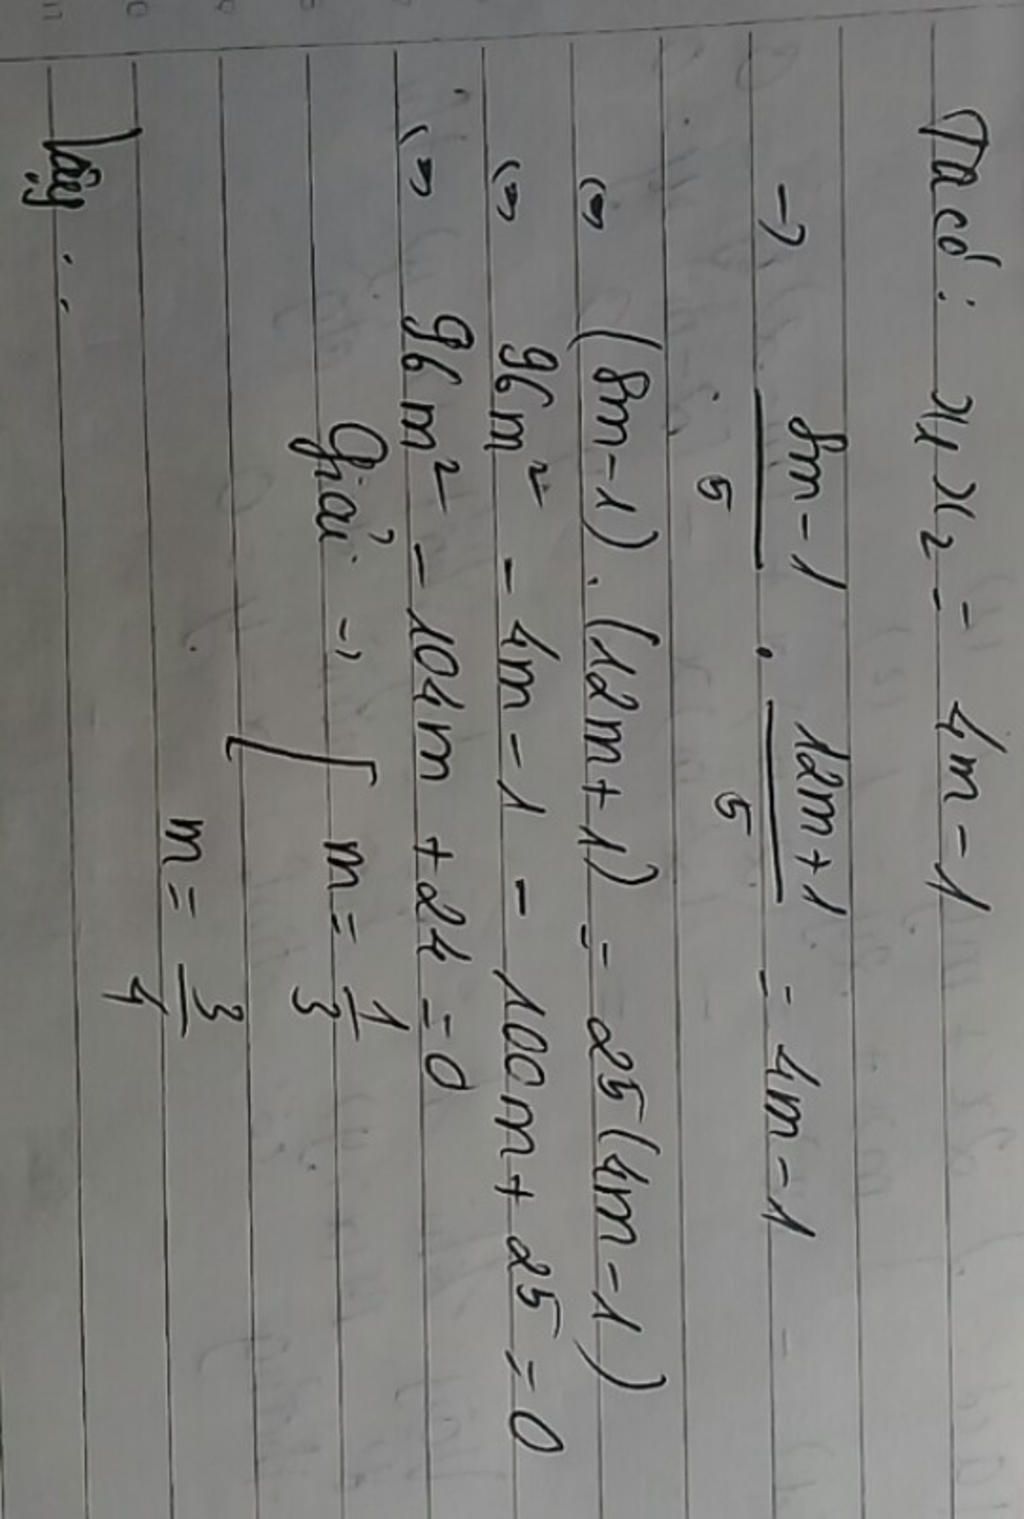 Ta có : x1 x2 = 4m - 1
→ 8m - 1 / 5 . 12m + 1 / 5 = 4m - 1
(=) (8m - 1) . (12m + 1) = 25 (4m - 1)
(=) 96m² - 4m - 1 - 100m + 25 = 0
(=) 96m² - 104m + 24 = 0
Giải → [ m = 1/3
m = 3/4
Vậy . .